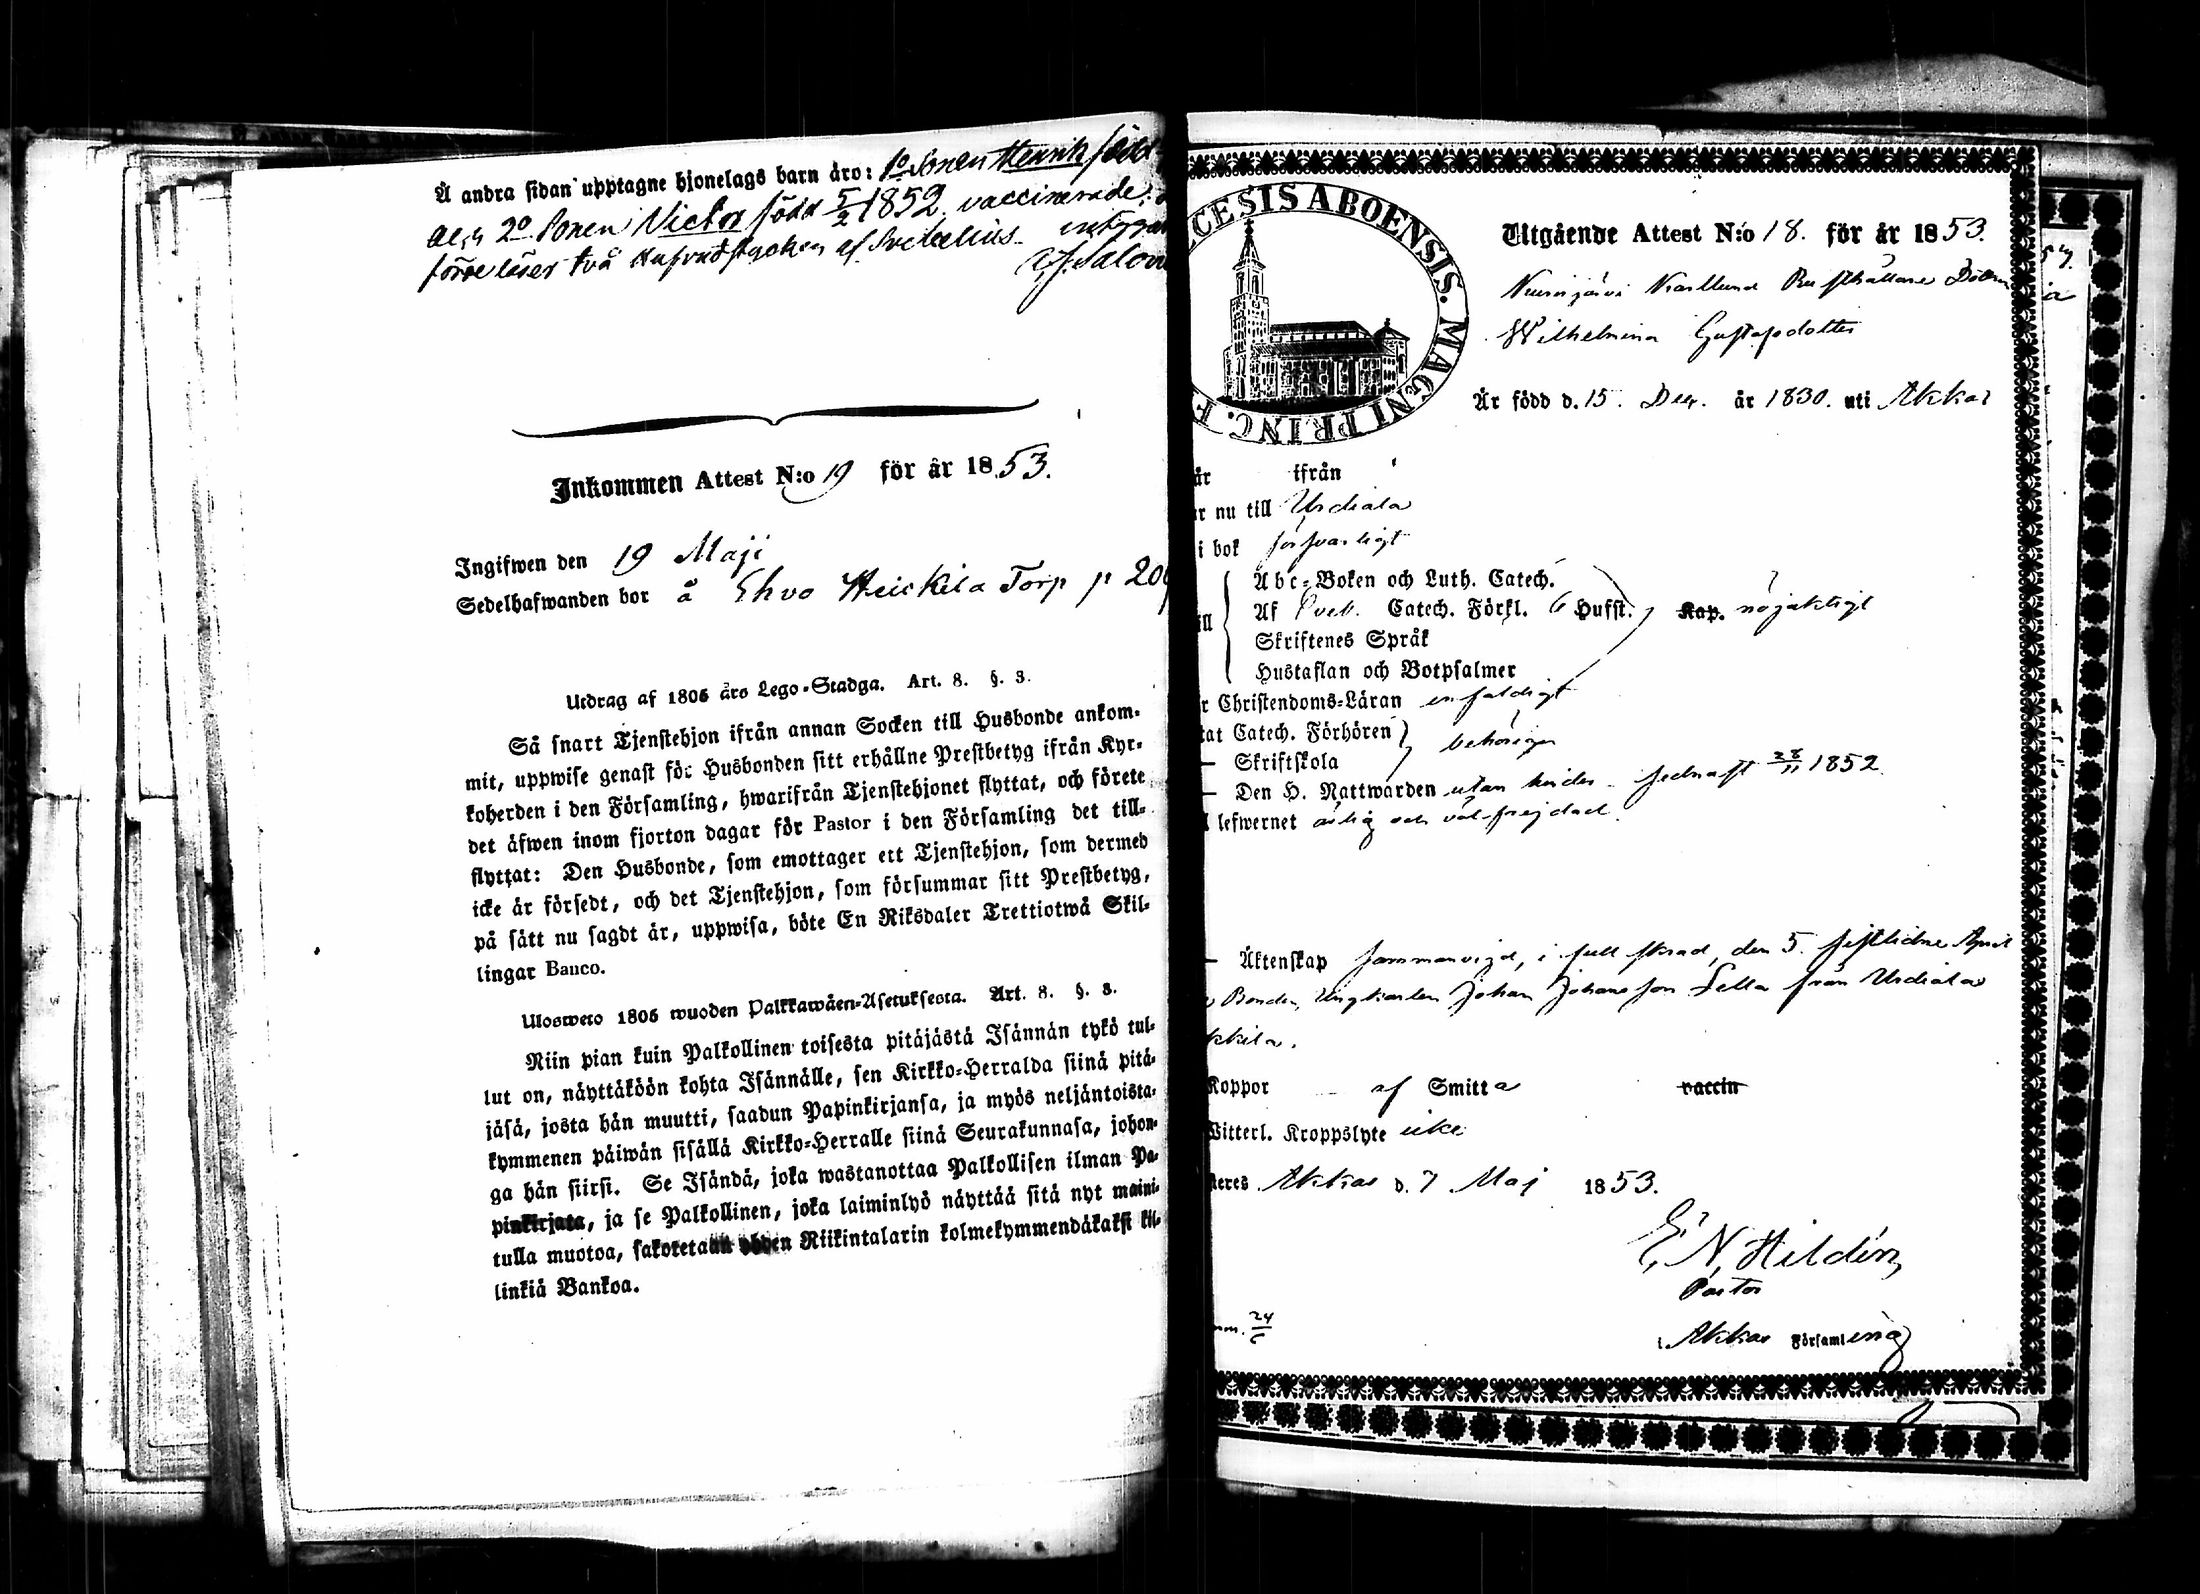 Å andra sidan upptagne hjonelags barn äro: 1o Sonen Henrik född
och 2o Sonen Victor född 5/2 1852, vaccinerade;
förre läser två hufvudstycken af Svebelius
Inkommen Attest N:o 19 för år 1853.
Ingifwen den 19 Maji
Sedelhafwanden bor å Ehvo Heickila Torp p 20
Utdrag af 1805 års Lego-Stadga. Art. 8. §. 3.
Så snart Tjenstehjon ifrån annan Socken till Husbonde ankom-
mit, uppwise genast för Husbonden sitt erhållne Prestbetyg ifrån Kyr-
koherden i den Församling, hwarifrån Tjenstehjonet flyttat, och förete
det äfwen inom fjorton dagar för Pastor i den Församling det till-
flyttat: Den Husbonde, som emottager ett Tjenstehjon, som dermed
icke är försedt, och det Tjenstehjon, som försummar sitt Prestbetyg,
på sätt nu sagdt är, uppwisa, böte En Riksdaler Trettiotwå Skil-
lingar Banco.
Ulosweto 1805 wuoden Palkkawäen-Asetuksesta. Art. 8. §. 3.
Niin pian kuin Palkollinen toisesta pitäjästä Isännän tykö tul-
lut on, näyttäköön kohta Isännälle, sen Kirkko-Herralda siinä pitä-
jäsä, josta hän muutti, saadun Papinkirjansa, ja myös neljäntoista-
kymmenen päiwän sisällä Kirkko-Herralle siinä Seurakunnasa, johon-
ga hän siirsi. Se Isändä, joka wastanottaa Palkollisen ilman Pa-
pinkirjata, ja se Palkollinen, joka laiminlyö näyttää sitä nyt maini-
tulla muotoa, sakotetaan yhden Riikintalarin kolmekymmendäkaksi kil-
linkiä Bankoa.
CESIS ABOENSIS. MAGNI PRINC. F
Utgående Attest N:o 18. för år 1853.
Nuurijärvi Karllund Rusthållare
Wilhelmina Gustafsdotter
Är född d. 15. Dec. år 1830. uti Akkas
är ifrån
r nu till Urdiala
i bok försvarligt
Abc-Boken och Luth. Catech.
Af Sveb. Catech. Förkl. 6 Hufst. Kap. nöjaktigt
Skriftenes Språk
Hustaflan och Botpsalmer
r Christendoms-Läran enfaldigt
tat Catech. Förhören
behörigen
— Skriftskola
— Den H. Nattwarden utan hinder sednast 28/11 1852.
lefwernet ärlig och välfrejdad.
— Äktenskap sammanvigd, i full skrud, den 5. sistlidne April
Bonden, Ungkarlen Johan Johansson Sella från Urdiala
kkila.
Koppor af Smitta vaccin
Witterl. Kroppslyte icke
teres Akkas d. 7 Maj 1853.
E. N. Hildén,
Pastor
i Akkas Församling
mm. 24/6